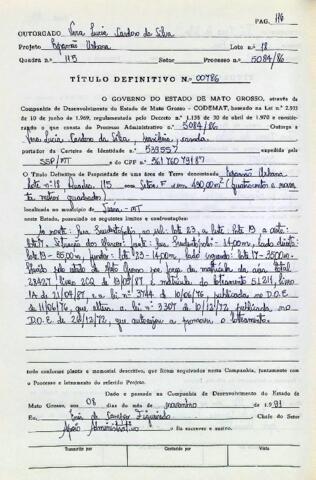 PAG. 116
OUTORGADO Vera Lucia Cardoso da Silva
Projeto Expansão Urbana Lote n.º 18
Quadra n.º 115 Processo n.º 5084/86
TÍTULO DEFINITIVO N.º 00786
O GOVERNO DO ESTADO DE MATO GROSSO, através da
Companhia de Desenvolvimento do Estado de Mato Grosso - CODEMAT, baseado na Lei n.º
de 10 de junho de 1.969, regulamentada pelo Decreto n.º 1.138 de 30 de abril de 1.970 e considerando
o que consta do Processo Administrativo n.º 5084/86. Outorga a
Vera Lucia Cardoso da Silva, brasileira,
portador da Carteira de Identidade n.º 535557 expedida pela
SSP/MT e do CPF n.º 361 760 791 87
O Título Definitivo de Propriedade de uma área de Terra denominada Expansão Urbana
lote nº 18 Quadra 115 com Setor F com 490,00m² (quatrocentos e noven
ta metros quadrados)
localizada no município de MT
neste Estado, possuindo os seguintes limites e confrontações:
Ao norte: Rua ao sul: lote 23, a leste: lote 13 a oeste:
lote 17. 14,00m, lado direito:
lote 13 - 35,00m, fundo: lote 23 - 14,00m, lado esquerdo: lote 17 - 35,00m.
pelo estado de Mato Grosso por força da matrícula da área total
23427 livro 2CQ de 13/07/87 e matrícula do loteamento
1A de 21/09/87 e a lei nº 3744 de 10/06/76, publicada no D.O.E.
de 11/06/76, que altera a lei nº 3307 de 18/12/72 publicada no
D.O.E. de 20/12/72, que autorizou a promover o loteamento.
tudo conforme planta e memorial descritivo, que ficam arquivados nesta Companhia, juntamente com
o Processo e loteamento do referido Projeto.
Dado e passado na Companhia de Desenvolvimento do Estado de
Mato Grosso, aos 08 dias do mês de novembro de 1.991
Eu, de Figueiredo Chefe do Setor
Apoio Administrativo o fiz escrever e assino.
Transcrito por Conferido por Visto